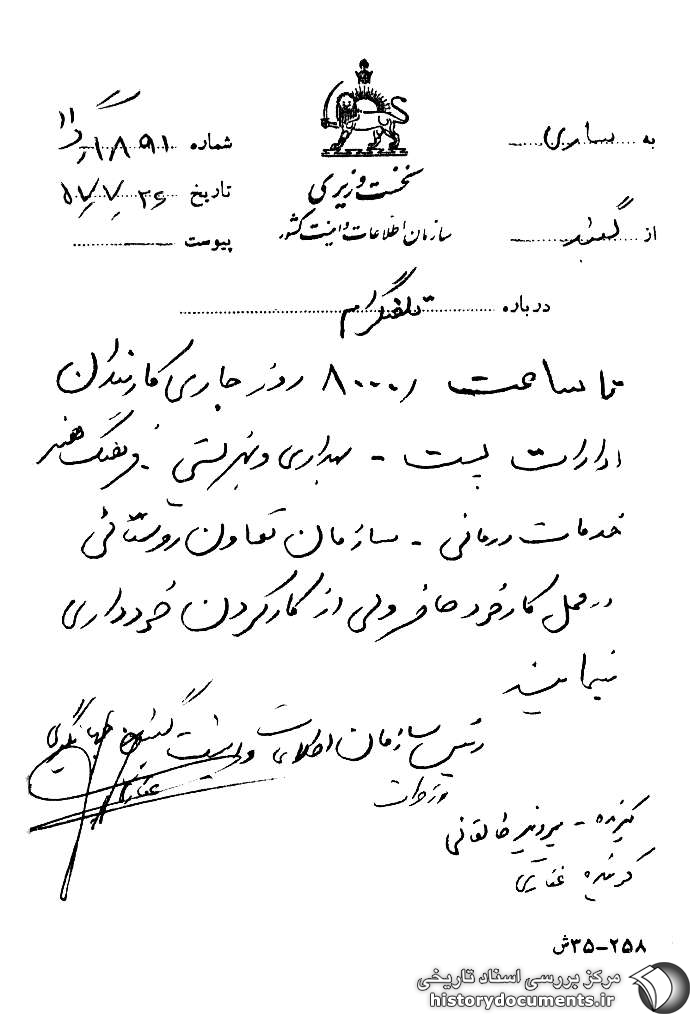 به ساری
از گنبد
نخست وزیری
سازمان اطلاعات و امنیت کشور
شماره ۱۸۹۱
تاریخ ۵۷/۷/۲۶
پیوست
درباره تلفنگرام
تا ساعت ۸۰۰۰ روز جاری کارمندان
ادارات پست - بهداری و بهزیستی - فرهنگ هنر
خدمات درمانی - سازمان تعاون روستائی
در محل کار خود حاضر ولی از کار کردن خودداری
مینمایند
رئیس سازمان اطلاعات و امنیت گنبد جهانگیری
غفاری
گیرنده - طالقانی
گوینده غفاری
۳۵-۲۵۸ش
مرکز بررسی اسناد تاریخی
historydocuments.ir